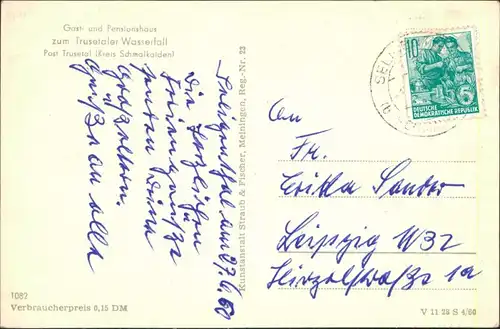 Gast- und Pensionshaus
zum Trusetaler Wasserfall
Post Trusetal (Kreis Schmalkalden)
Seligenthal am 27.6.60
Die herzlichsten
Feriengrüße
senden
Großeltern.
Gruß an alle
Kunstanstalt Straub & Fischer, Meiningen, Reg.-Nr. 23
10
DEUTSCHE
DEMOKRATISCHE REPUBLIK
An
Fr.
Erika Sander
Leipzig W32
1a
1082
Verbraucherpreis 0,15 DM
V 11 28 S 4/60